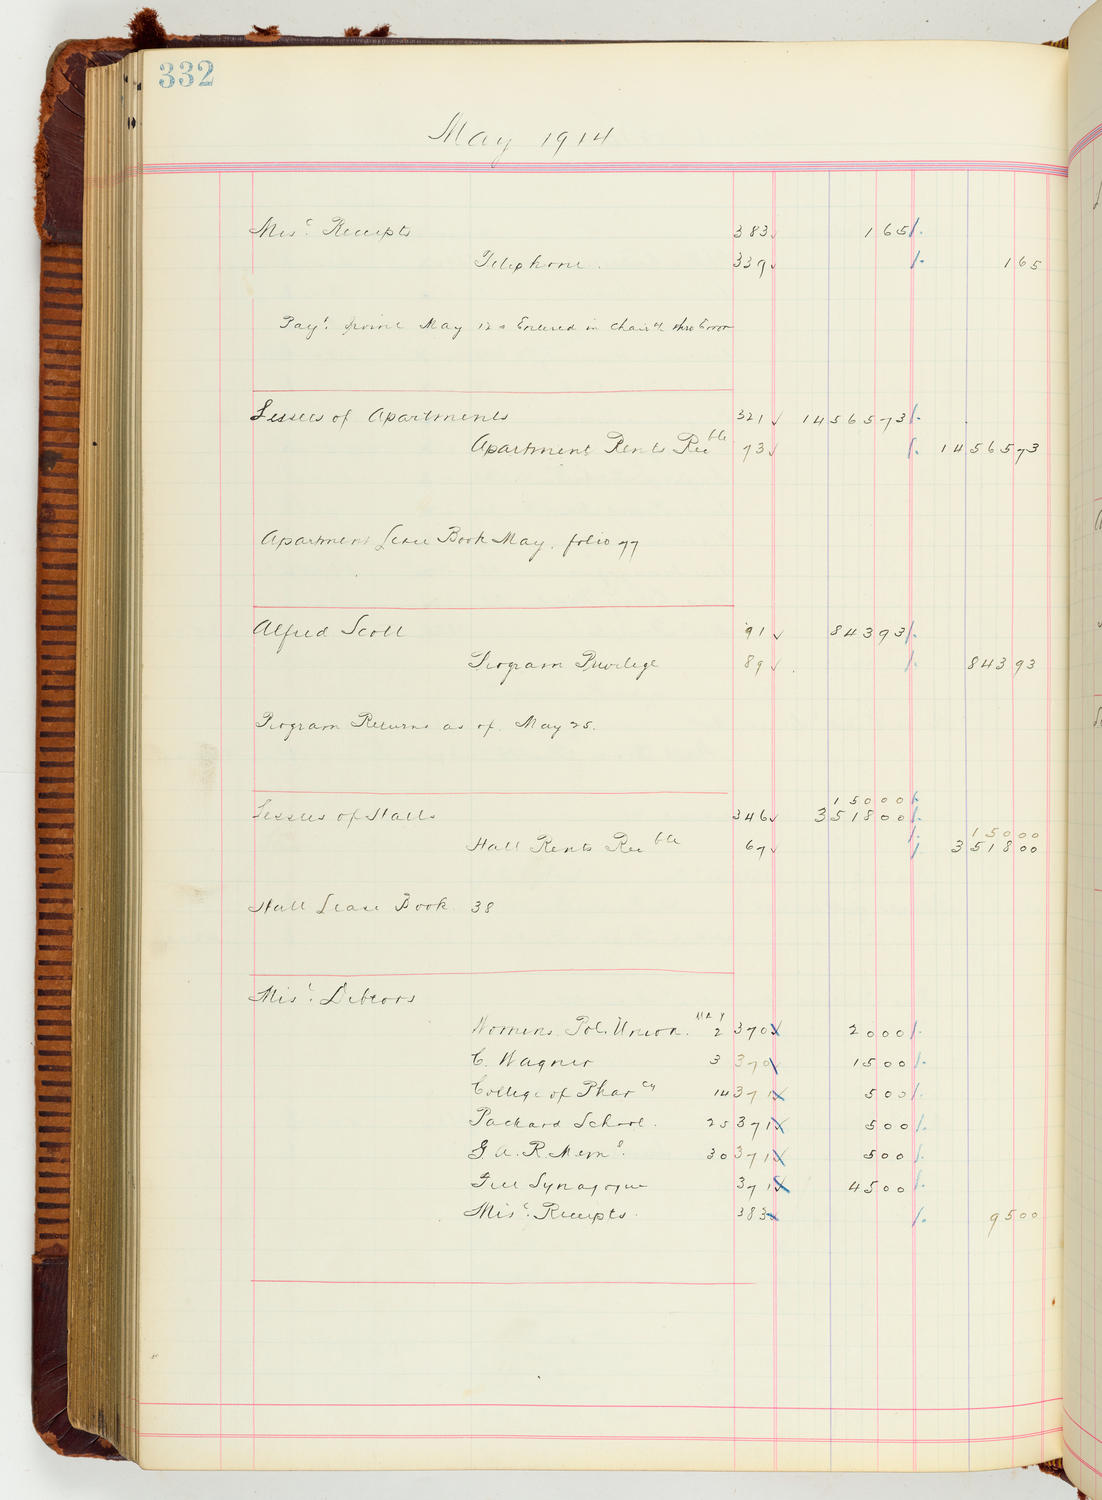 332
May 1914
Misc. Receipts 383 165
Telephone. 339 165
Payt. Irvine May 12 Entered in error
Lessees of Apartments 321 1456573
Apartment Rents Recble 73 1456573
Apartment Lease Book May. folio 77
Alfred Scott 91 84393
Program Privilege 89 84393
Program Returns as of May 25.
15000
Lessees of Halls 346 351800
15000
Hall Rents Recble 67 351800
Hall Lease Book 38
Misc. Debtors
May
Womens Pol. Union. 2 370 2000
C. Wagner 3 370 1500
College of Pharcy 14 371 500
Packard School. 25 371 500
G. A. R. Meml. 30 371 500
Free Synagogue 371 4500
Misc. Receipts. 383 9500